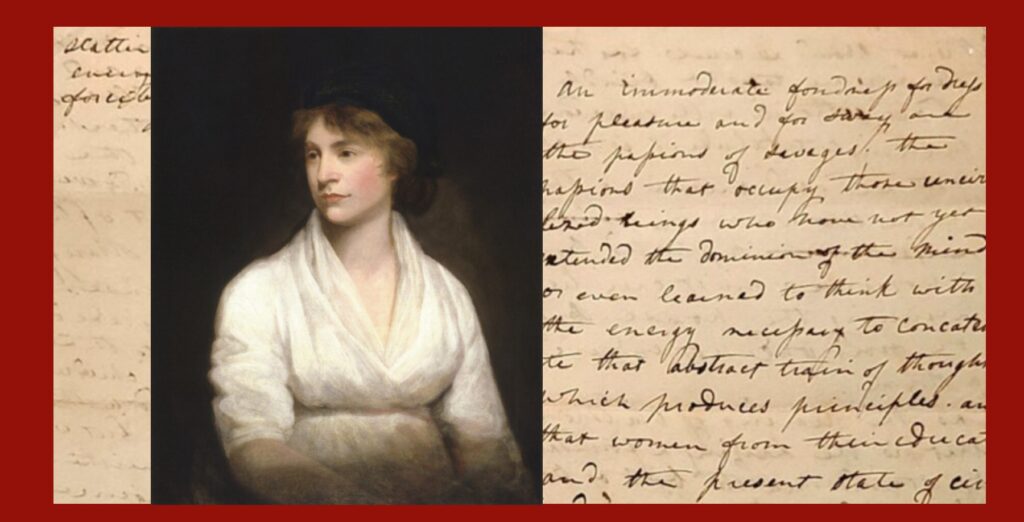 scatte
energ
forcib
an immoderate fondness for dress
for pleasure and for sway are
the passions of savages. the
passions that occupy those unciv
lized beings who have not yet
xtended the dominion of the mind
or even learned to think with
the energy necessary to concate
te that abstract train of though
which produces principles. an
that women from their educat
and the present state of civ